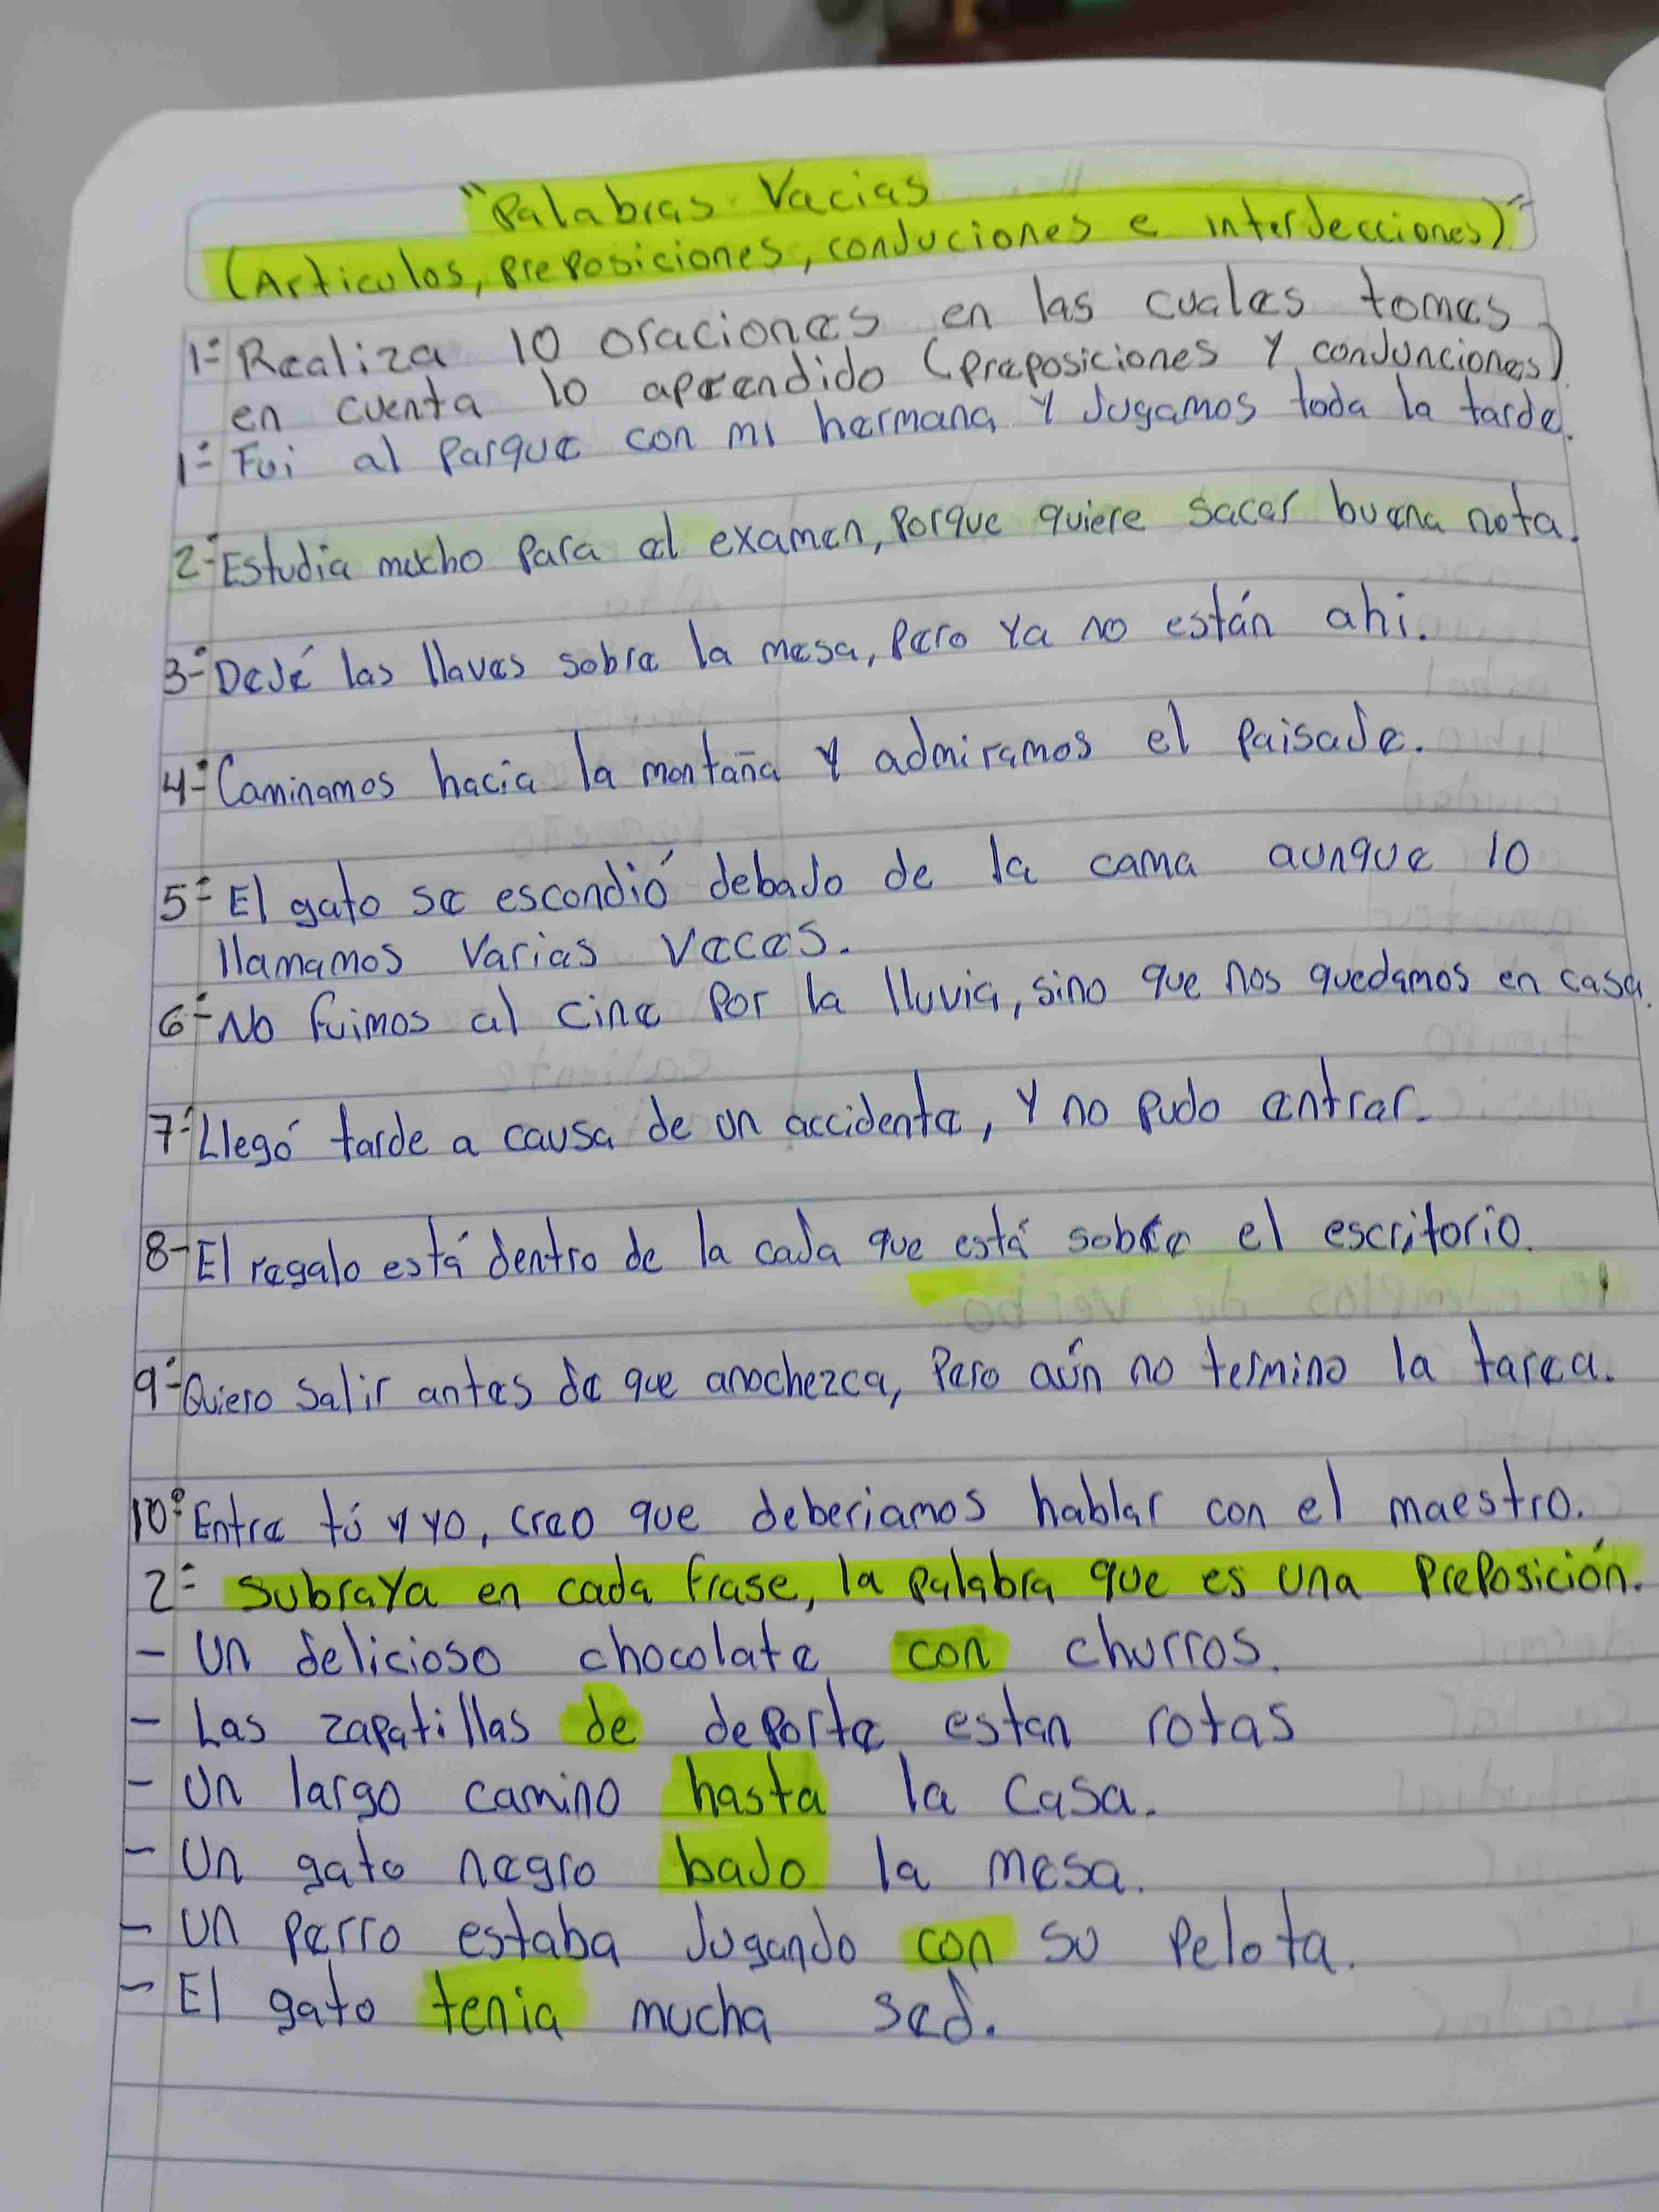 "Palabras Vacias
(Articulos, preposiciones, conjuciones e interjecciones)"
1- Realiza 10 oraciones en las cuales tomes
en cuenta lo aprendido (preposiciones y conjunciones)
1- Fui al parque con mi hermana y jugamos toda la tarde.
2- Estudia mucho para el examen, porque quiere sacar buena nota.
3- Dejé las llaves sobre la mesa, pero ya no están ahi.
4- Caminamos hacia la montaña y admiramos el paisaje.
5- El gato se escondió debajo de la cama aunque lo
llamamos varias veces.
6- No fuimos al cine por la lluvia, sino que nos quedamos en casa.
7- Llegó tarde a causa de un accidente, y no pudo entrar.
8- El regalo está dentro de la caja que está sobre el escritorio.
9- Quiero salir antes de que anochezca, pero aún no termino la tarea.
10- Entre tú y yo, creo que deberiamos hablar con el maestro.
2- Subraya en cada frase, la palabra que es una preposición.
- Un delicioso chocolate con churros.
- Las zapatillas de deporte estan rotas
- Un largo camino hasta la casa.
- Un gato negro bajo la mesa.
- Un perro estaba jugando con su pelota.
- El gato tenia mucha sed.